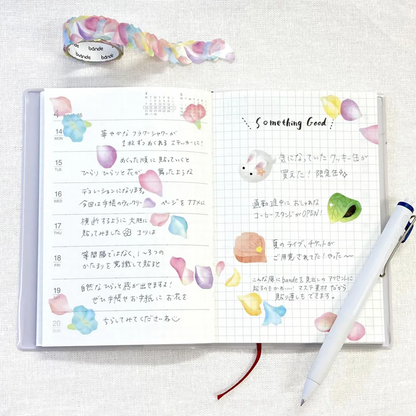 bande
4
14
MON
華やかなフラワーシャワーが
1枚ずつめくれるステッカーに!
15
TUE
めくった順に貼っていくと
ひらりひらりと花が舞ったような
16
WED
デコレーションになります。
今回は手帳のウィークリーページをアメに
17
THU
横断するように大胆に
貼ってみました コツは
18
FRI
等間隔ではなく、1〜3つの
かたまりを意識して貼ると
19
自然なひらっと感が出せますよ!
ぜひ手帳やお手紙にお花を
20
SUN
ちらしてみてくださいね
Something Good
気になっていたクッキー缶が
買えた!
通勤途中におしゃれな
コーヒースタンドがOPEN!
夏のライブ、チケットが
ご用意されてた!やったー
こんな風にbandeを見出しの
マステ素材だから
貼り直しもできます。